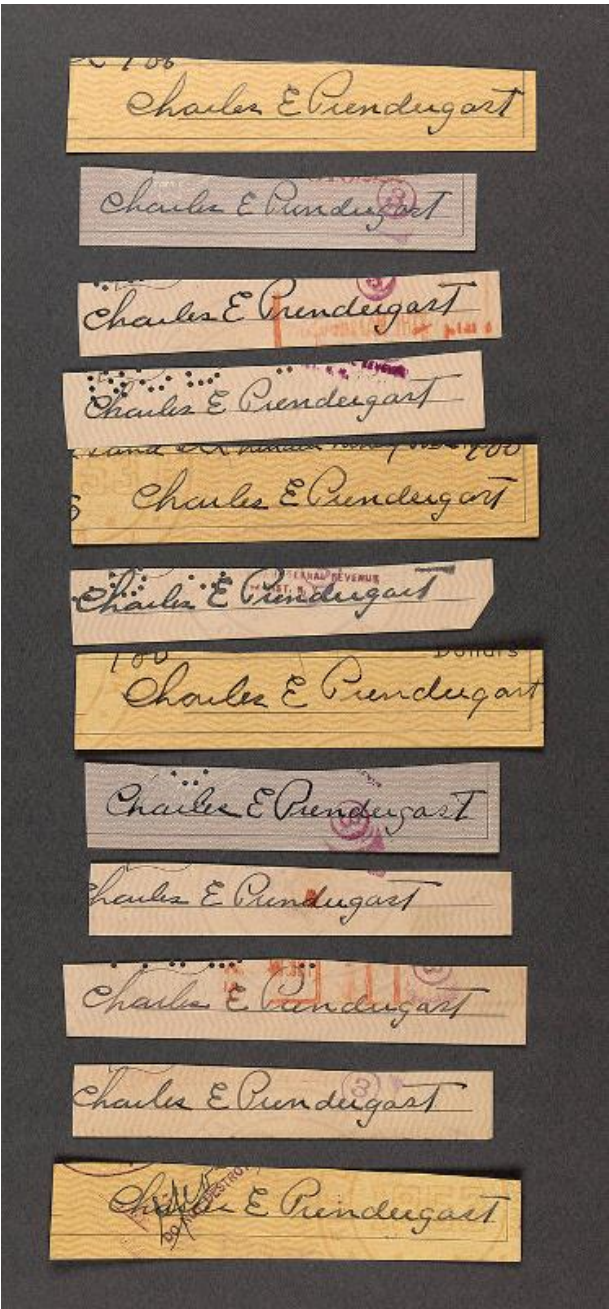 100
Charles E Prendergast
Charles E Prendergast
3
Charles E Prendergast
3
REVENUE
Charles E Prendergast
100
Charles E Prendergast
INTERNAL REVENUE
DIST. N.
Charles E Prendergast
100 Dollars
Charles E Prendergast
Charles E Prendergast
3
Charles E Prendergast
3
Charles E Prendergast
3
Charles E Prendergast
Charles E Prendergast
DO NOT DESTROY